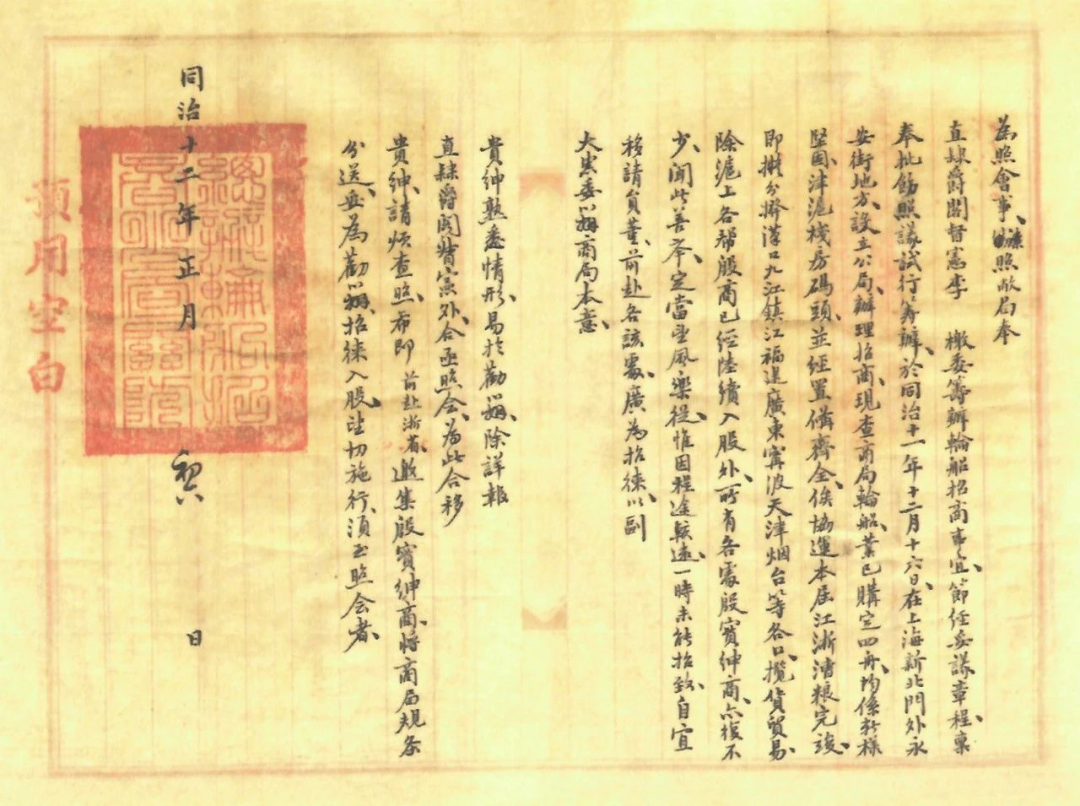 為照會事、照敝局奉
直隸爵閣督憲李 檄委籌辦輪船招商事宜、節經妥議章程、稟
奉批飭照議試行、籌辦、於同治十一年十二月十六日、在上海新北門外永
安街地方、設立公局、辦理招商、現查商局輪船、業已購定四舟、均係新樣
堅固、津滬棧房碼頭、並經置備齊全、俟協運本屆江浙漕糧完竣、
即擬分搭漢口九江鎮江福建廣東寧波天津烟台等各口、攬貨貿易、
除滬上各幫股商已經陸續入股外、所有各處殷實紳商、亦復不
少、聞此善舉、定當望風樂從、惟因程途較遠、一時未能招致、自宜
移請貟董、前赴各該處、廣為招徠、以副
大憲委以招商局本意、
貴紳熟悉情形、易於勸、除詳報
直隸爵閣督憲外、合亟照會、為此合移
貴紳、請煩查照、希即 前赴浙省、邀集殷實紳商、將商局規條
分送、並為勸招徠入股、望切施行、須至照會者、
同治十二年正月 日
預用空白